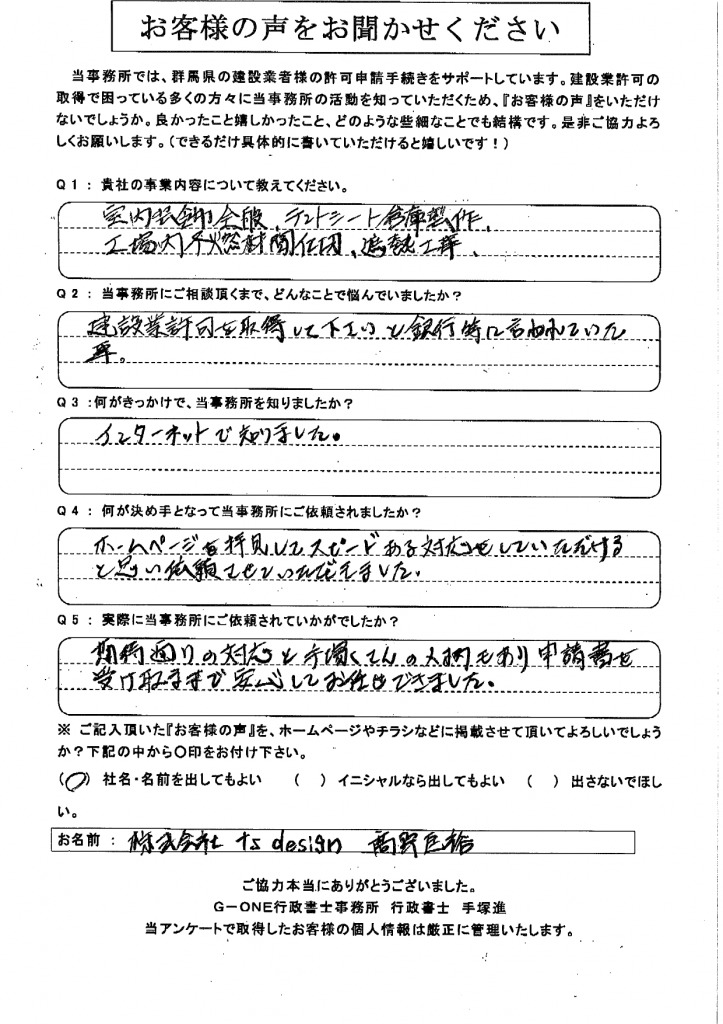 お客様の声をお聞かせください
当事務所では、群馬県の建設業者様の許可申請手続きをサポートしています。建設業許可の
取得で困っている多くの方々に当事務所の活動を知っていただくため、『お客様の声』をいただけ
ないでしょうか。良かったこと嬉しかったこと、どのような些細なことでも結構です。是非ご協力よろ
しくお願いします。（できるだけ具体的に書いていただけると嬉しいです！）
Q1：貴社の事業内容について教えてください。
室内装飾全般、テントシート倉庫製作、
工場内不燃材間仕切、遮熱工事、
Q2：当事務所にご相談頂くまで、どんなことで悩んでいましたか？
建設業許可を取得して下さいと銀行等に言われていた
事。
Q3：何がきっかけで、当事務所を知りましたか？
インターネットで知りました。
Q4：何が決め手となって当事務所にご依頼されましたか？
ホームページを拝見してスピードある対応をしていただける
と思い依頼させていただきました。
Q5：実際に当事務所にご依頼されていかがでしたか？
期待通りの対応と手塚さんの人柄もあり申請書を
受け取るまで安心してお任せできました。
※ ご記入頂いた『お客様の声』を、ホームページやチラシなどに掲載させて頂いてよろしいでしょう
か？下記の中から〇印をお付け下さい。
（〇）社名・名前を出してもよい （ ）イニシャルなら出してもよい （ ）出さないでほし
い。
お名前： 株式会社 ts design 髙野
ご協力本当にありがとうございました。
G－ONE行政書士事務所 行政書士 手塚進
当アンケートで取得したお客様の個人情報は厳正に管理いたします。